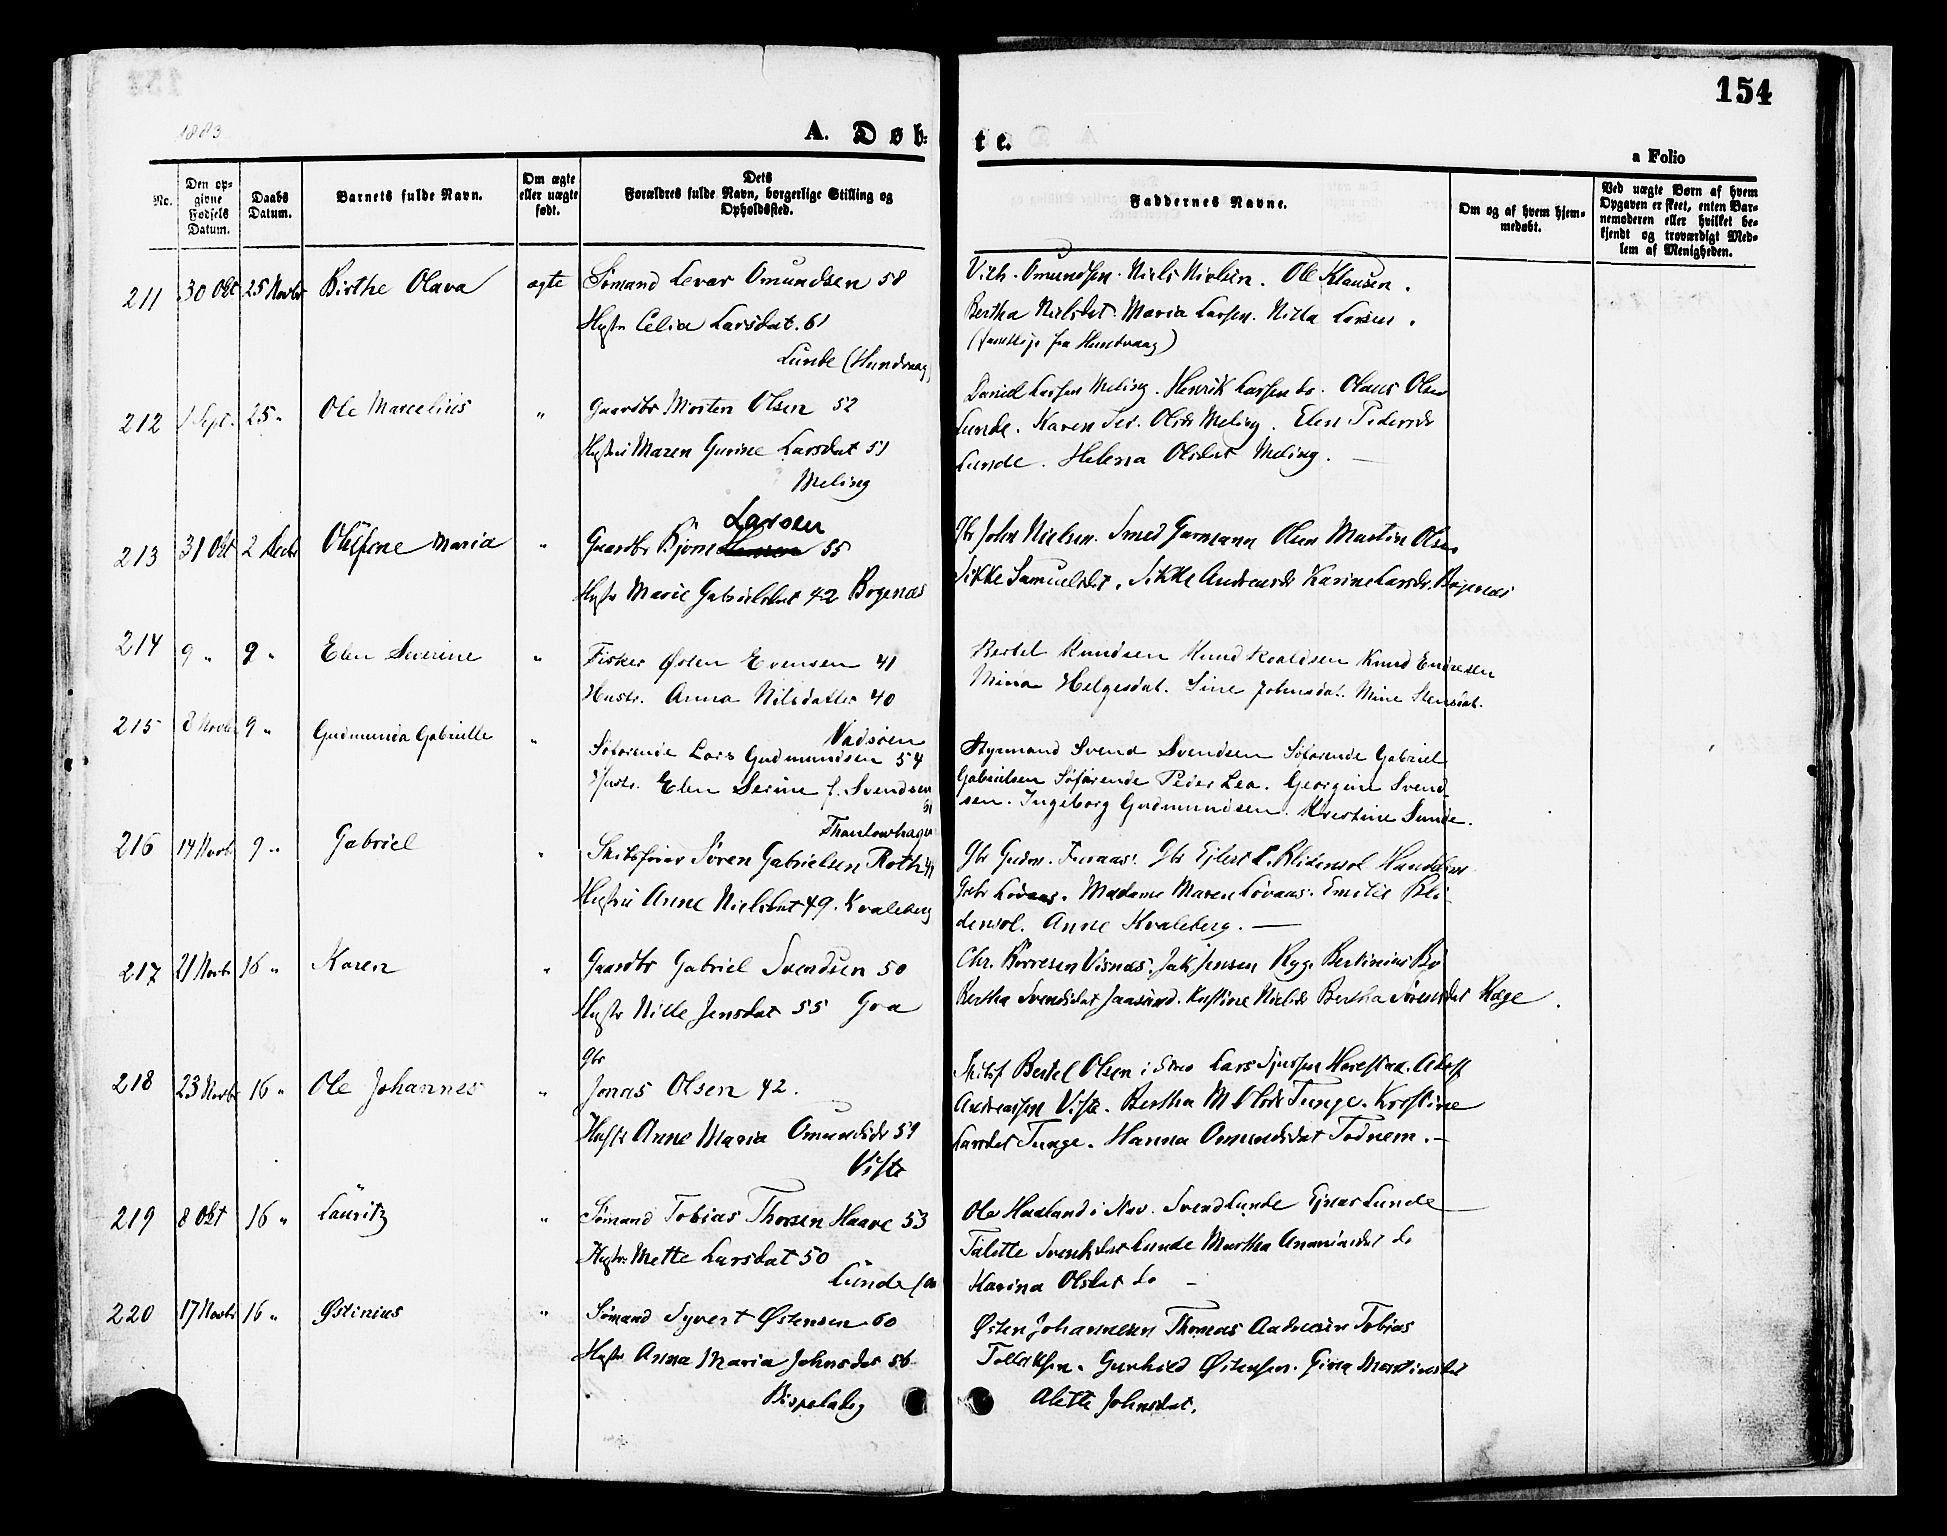 154
1883
A. Døb-
te.
a Folio
No.
Den op-
givne
Fødsels
Datum.
Daabs
Datum.
Barnets fulde Navn.
Om ægte
eller uægte
født.
Dets
Forældres fulde Navn, borgerlige Stilling og
Opholdssted.
Faddernes Navne.
Om og af hvem hjem-
medøbt.
Ved uægte Børn af hvem
Opgaven er skeet, enten Bar-
nemoderen eller hvilket be-
kjendt og troværdigt Med-
lem af Menigheden.
211 30 Okt 25 Novbr Birthe Olava ægte Sømand Levar Omundsen 58
Hustr Celia Larsdat. 61
Lunde (Hundvaag)
Vilh. Omundsen. Niels Nielsen. Ole Klausen.
Bertha Nielsdat. Maria Larsen. Nilla Larsen.
(samtlige fra Hundvaag)
212 1 Sept. 25 " Ole Marcelius " Gaardbr Morten Olsen 52
Hustru Maren Gurine Larsdat 51
Meling
Daniel Larsen Meling. Henrik Larsen do. Olaus Olsen
Lunde. Karen Olsdr Meling. Elen Pedersdr
Lunde. Helena Olsdat Meling.
213 31 Okt 2 Decbr Oline Maria " Gaardbr Bjørn Larsen 55
Hustr Marie Gabrielsdat 42 Bøgenæs
Gbr John Nielsen. Smed Garmann Olsen Martin Olsen
Sikke Samuelsdat. Sikke Andreasdr Karine Larsdr. Bøjenæs
214 9 " 9 " Elen Severine " Fisker Østen Evensen 41
Hustr. Anna Nilsdatter 40
Vadsøen
Bertel Knudsen Knud Roaldsen Knud Endresen
Mina Helgesdat. Sine Johnsdat. Mine Stensdat.
215 8 Novbr 9 " Gudmunda Gabrielle " Søfarende Lars Gudmundsen 54
Hustr. Elen Serine f. Svendsen
51
Thaulowhagen
Styrmand Svend Svendsen Søfarende Gabriel
Gabrielsen Søfarende Peder Lea. Georgine Svend-
sen. Ingeborg Gudmundsen. Kristine Sunde.
216 14 Novb. 9 " Gabriel " Skibsfører Søren Gabrielsen Roth 41
Hustru Anne Nielsdat 49. Kvaleberg
Gbr Gudm. Furaas. Gbr Ejlert L. Blidensol Handelsm
Gabr Lovaas. Madame Maren Lovaas. Emilie Bli-
densol. Anne Kvaleberg.
217 21 Novbr 16 " Karen " Gaardbr Gabriel Svendsen 50
Hustr Nille Jensdat 55 Goa
Chr. Børresen Visnæs. Jak Jensen Ryg. Bertinius Bø
Bertha Svendsdat Jaasund. Kristine Nielsdr Bertha Sørensdat Røge.
218 23 Novbr 16 " Ole Johannes " Gbr
Jonas Olsen 42.
Hustr Anne Maria Omundsdr 51
Viste
Skibsf Bertel Olsen i Stav Lars Harestad. Adolf
Andreassen Viste. Bertha M Olsdr Tunge. Kristine
Larsdat Tunge. Hanna Omundsdat Todnem.
219 8 Okt 16 " Lauritz " Sømand Tobias Thorsen Haave 53
Hustr. Mette Larsdat 50
Lunde
Ole Haaland i Nav. Svend Lunde Ejnar Lunde
Talette Svendsdat Lunde Martha Ananiasdat do
Karina Olsdat do
220 17 Novbr 16 " Østinius " Sømand Syvert Østensen 60
Hustr Anna Maria Johnsdat 56
Bispeladeg
Østen Johannesen Thomas Andersen Tobias
Tollaksen. Gunhild Østensen. Gina Martinsdat
Alette Johnsdat.